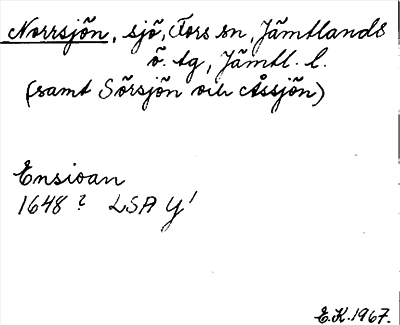 Norrsjön, sjö, Fors sn, Jämtlands
ö. tg, Jämtl. l.
(samt Sörsjön och Åssjön)
Ensioan
1648 ? LSA Y'
E.K. 1967.